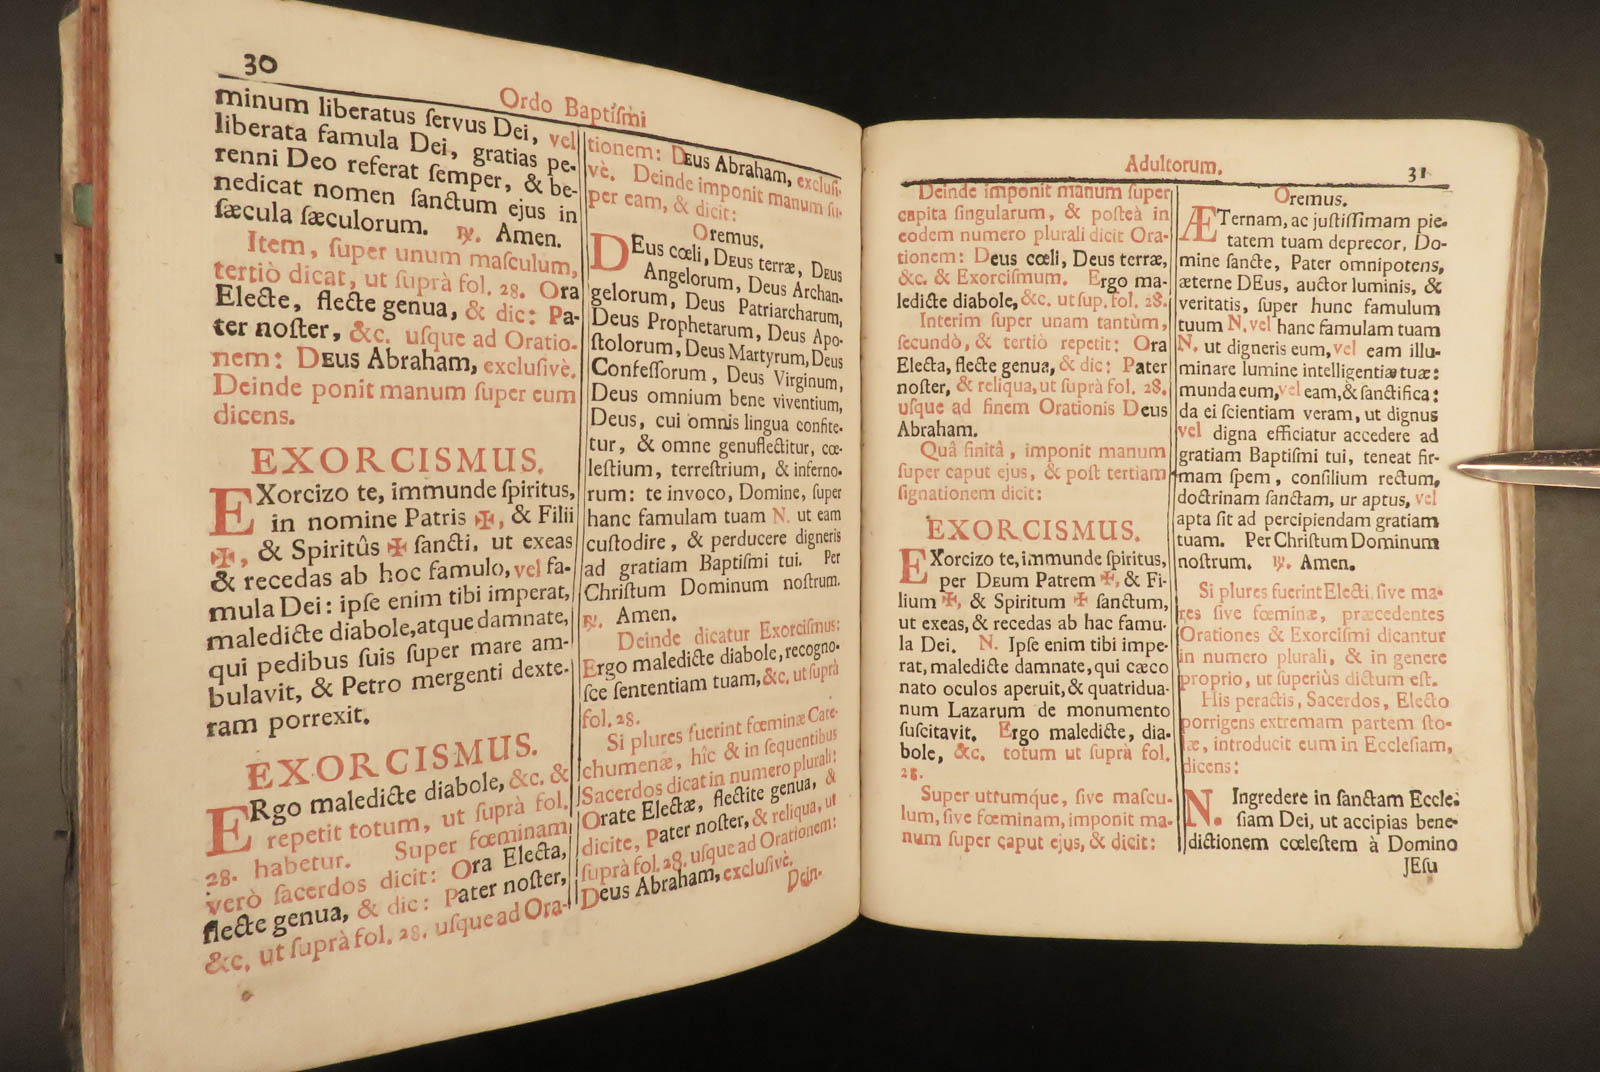 30
Ordo Baptiſmi
minum liberatus ſervus Dei, vel
liberata famula Dei, gratias pe-
renni Deo referat ſemper, & be-
nedicat nomen ſanctum ejus in
ſæcula ſæculorum. ℟. Amen.
Item, ſuper unum maſculum,
tertiò dicat, ut ſuprà fol. 28. Ora
Electe, flecte genua, & dic: Pa-
ter noſter, &c. uſque ad Oratio-
nem: DEUS Abraham, exclusivè.
Deinde ponit manum ſuper eum
dicens.
EXORCISMUS.
EXorcizo te, immunde ſpiritus,
in nomine Patris ✠, & Filii
✠, & Spiritûs ✠ ſancti, ut exeas
& recedas ab hoc famulo, vel fa-
mula Dei: ipſe enim tibi imperat,
maledicte diabole, atque damnate,
qui pedibus ſuis ſuper mare am-
bulavit, & Petro mergenti dexte-
ram porrexit.
EXORCISMUS.
ERgo maledicte diabole, &c. &
repetit totum, ut ſuprà fol.
28. habetur. Super fœminam
verò ſacerdos dicit: Ora Electa,
flecte genua, & dic: Pater noſter,
&c. ut ſuprà fol. 28. uſque ad Ora-
tionem: DEUS Abraham, excluſi-
vè. Deinde imponit manum ſu-
per eam, & dicit:
Oremus.
DEus cœli, DEUS terræ, DEUS
Angelorum, DEUS Archan-
gelorum, DEUS Patriarcharum,
DEUS Prophetarum, DEUS Apo-
ſtolorum, DEUS Martyrum, DEUS
Confeſſorum, DEUS Virginum,
DEUS omnium bene viventium,
DEUS, cui omnis lingua confite-
tur, & omne genuflectitur, cœ-
leſtium, terreſtrium, & inferno-
rum: te invoco, Domine, ſuper
hanc famulam tuam N. ut eam
cuſtodire, & perducere digneris
ad gratiam Baptiſmi tui. Per
Chriſtum Dominum noſtrum.
℟. Amen.
Deinde dicatur Exorciſmus:
Ergo maledicte diabole, recogno-
ſce ſententiam tuam, &c. ut ſuprà
fol. 28.
Si plures fuerint fœminæ Cate-
chumenæ, hîc & in ſequentibus
Sacerdos dicat in numero plurali:
Orate Electæ, flectite genua, &
dicite, Pater noſter, & reliqua, ut
ſuprà fol. 28. uſque ad Orationem:
DEUS Abraham, excluſivè.
Dein-
Adultorum.
31
Deinde imponit manum ſuper
capita ſingularum, & poſteà in
eodem numero plurali dicit Ora-
tionem: DEUS cœli, DEUS terræ,
&c. & Exorciſmum. Ergo ma-
ledicte diabole, &c. ut ſup. fol. 28.
Interim ſuper unam tantùm,
ſecundò, & tertiò repetit: Ora
Electa, flecte genua, & dic: Pater
noſter, & reliqua, ut ſuprà fol. 28.
uſque ad finem Orationis DEUS
Abraham.
Quâ finitâ, imponit manum
ſuper caput ejus, & poſt tertiam
ſignationem dicit:
EXORCISMUS.
EXorcizo te, immunde ſpiritus,
per DEUM Patrem ✠, & Fi-
lium ✠, & Spiritum ✠ ſanctum,
ut exeas, & recedas ab hac famu-
la Dei. N. Ipſe enim tibi impe-
rat, maledicte damnate, qui cæco
nato oculos aperuit, & quatridua-
num Lazarum de monumento
ſuſcitavit. Ergo maledicte, dia-
bole, &c. totum ut ſuprà fol.
28.
Super utrumque, ſive maſcu-
lum, ſive fœminam, imponit ma-
num ſuper caput ejus, & dicit:
Oremus.
ÆTernam, ac juſtiſſimam pie-
tatem tuam deprecor, Do-
mine ſancte, Pater omnipotens,
æterne DEus, auctor luminis, &
veritatis, ſuper hunc famulum
tuum N. vel hanc famulam tuam
N. ut digneris eum, vel eam illu-
minare lumine intelligentiæ tuæ:
munda eum, vel eam, & ſanctifica:
da ei ſcientiam veram, ut dignus
vel digna efficiatur accedere ad
gratiam Baptiſmi tui, teneat fir-
mam ſpem, conſilium rectum,
doctrinam ſanctam, ur aptus, vel
apta ſit ad percipiendam gratiam
tuam. Per Chriſtum Dominum
noſtrum. ℟. Amen.
Si plures fuerint Electi, ſive ma-
res ſive fœminæ, præcedentes
Orationes & Exorciſmi dicantur
in numero plurali, & in genere
proprio, ut ſuperiùs dictum eſt.
His peractis, Sacerdos, Electo
porrigens extremam partem ſto-
læ, introducit eum in Eccleſiam,
dicens:
N. Ingredere in ſanctam Eccle-
ſiam Dei, ut accipias bene-
dictionem cœleſtem à Domino
JEſu